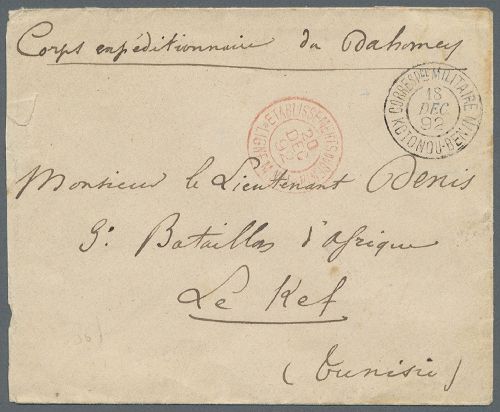 Corps expéditionnaire du Dahomey
CORRESP. MILITAIRE
18
DEC
92
KOTONOU-BENIN
ETABLISSEMENTS
20
DEC
92
Monsieur le Lieutenant Denis
3e Bataillon d'Afrique
Le Kef
(Tunisie)